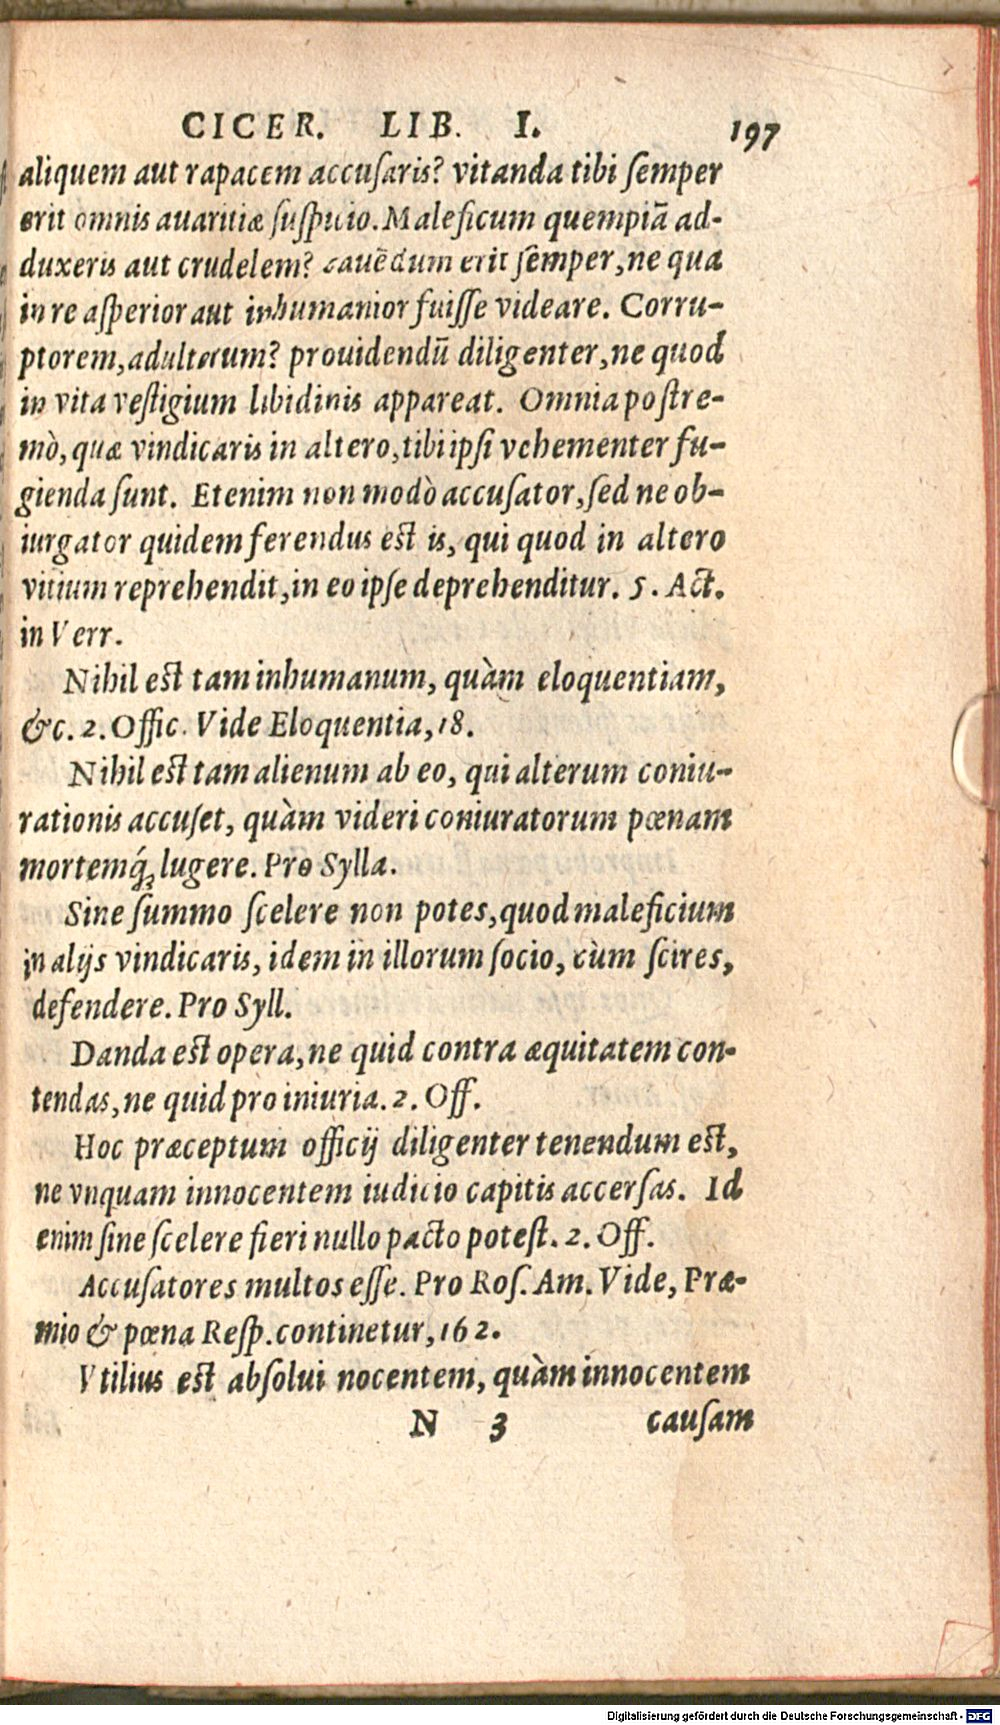 CICER. LIB. I. 197
aliquem aut rapacem accuſaris? vitanda tibi ſemper
erit omnis auaritiæ ſuſpicio. Maleficum quempiã ad-
duxeris aut crudelem? cauẽdum erit ſemper, ne qua
in re aſperior aut inhumanior fuiſſe videare. Corru-
ptorem, adulterum? prouidendũ diligenter, ne quod
in vita veſtigium libidinis appareat. Omnia poſtre-
mò, quæ vindicaris in altero, tibi ipſi vehementer fu-
gienda ſunt. Etenim non modò accuſator, ſed ne ob-
iurgator quidem ferendus eſt is, qui quod in altero
vitium reprehendit, in eo ipſe deprehenditur. 5. Act.
in Verr.
Nihil eſt tam inhumanum, quàm eloquentiam,
&c. 2. Offic. Vide Eloquentia, 18.
Nihil eſt tam alienum ab eo, qui alterum coniu-
rationis accuſet, quàm videri coniuratorum pœnam
mortemq́; lugere. Pro Sylla.
Sine ſummo ſcelere non potes, quod maleficium
in alijs vindicaris, idem in illorum ſocio, cùm ſcires,
defendere. Pro Syll.
Danda eſt opera, ne quid contra æquitatem con-
tendas, ne quid pro iniuria. 2. Off.
Hoc præceptum officij diligenter tenendum eſt,
ne vnquam innocentem iudicio capitis accerſas. Id
enim ſine ſcelere fieri nullo pacto poteſt. 2. Off.
Accuſatores multos eſſe. Pro Roſ. Am. Vide, Præ-
mio & pœna Reſp. continetur, 162.
Vtilius eſt abſolui nocentem, quàm innocentem
N 3 cauſam
Digitalisierung gefördert durch die Deutsche Forschungsgemeinschaft - DFG